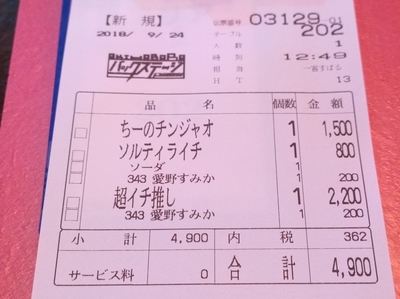 【新 規】
伝票番号 03129 01
テーブル 202
2018/ 9/24
人数 1
バックステージ
時刻 12:49
担当
HT 13
品 名 個数 金額
ちーのチンジャオ 1 1,500
ソルティライチ 1 800
ソーダ 1
343 愛野すみか 1 200
超イチ推し 1 2,200
343 愛野すみか 1 200
小 計 4,900 内 税 362
サービス料 0 合 計 4,900